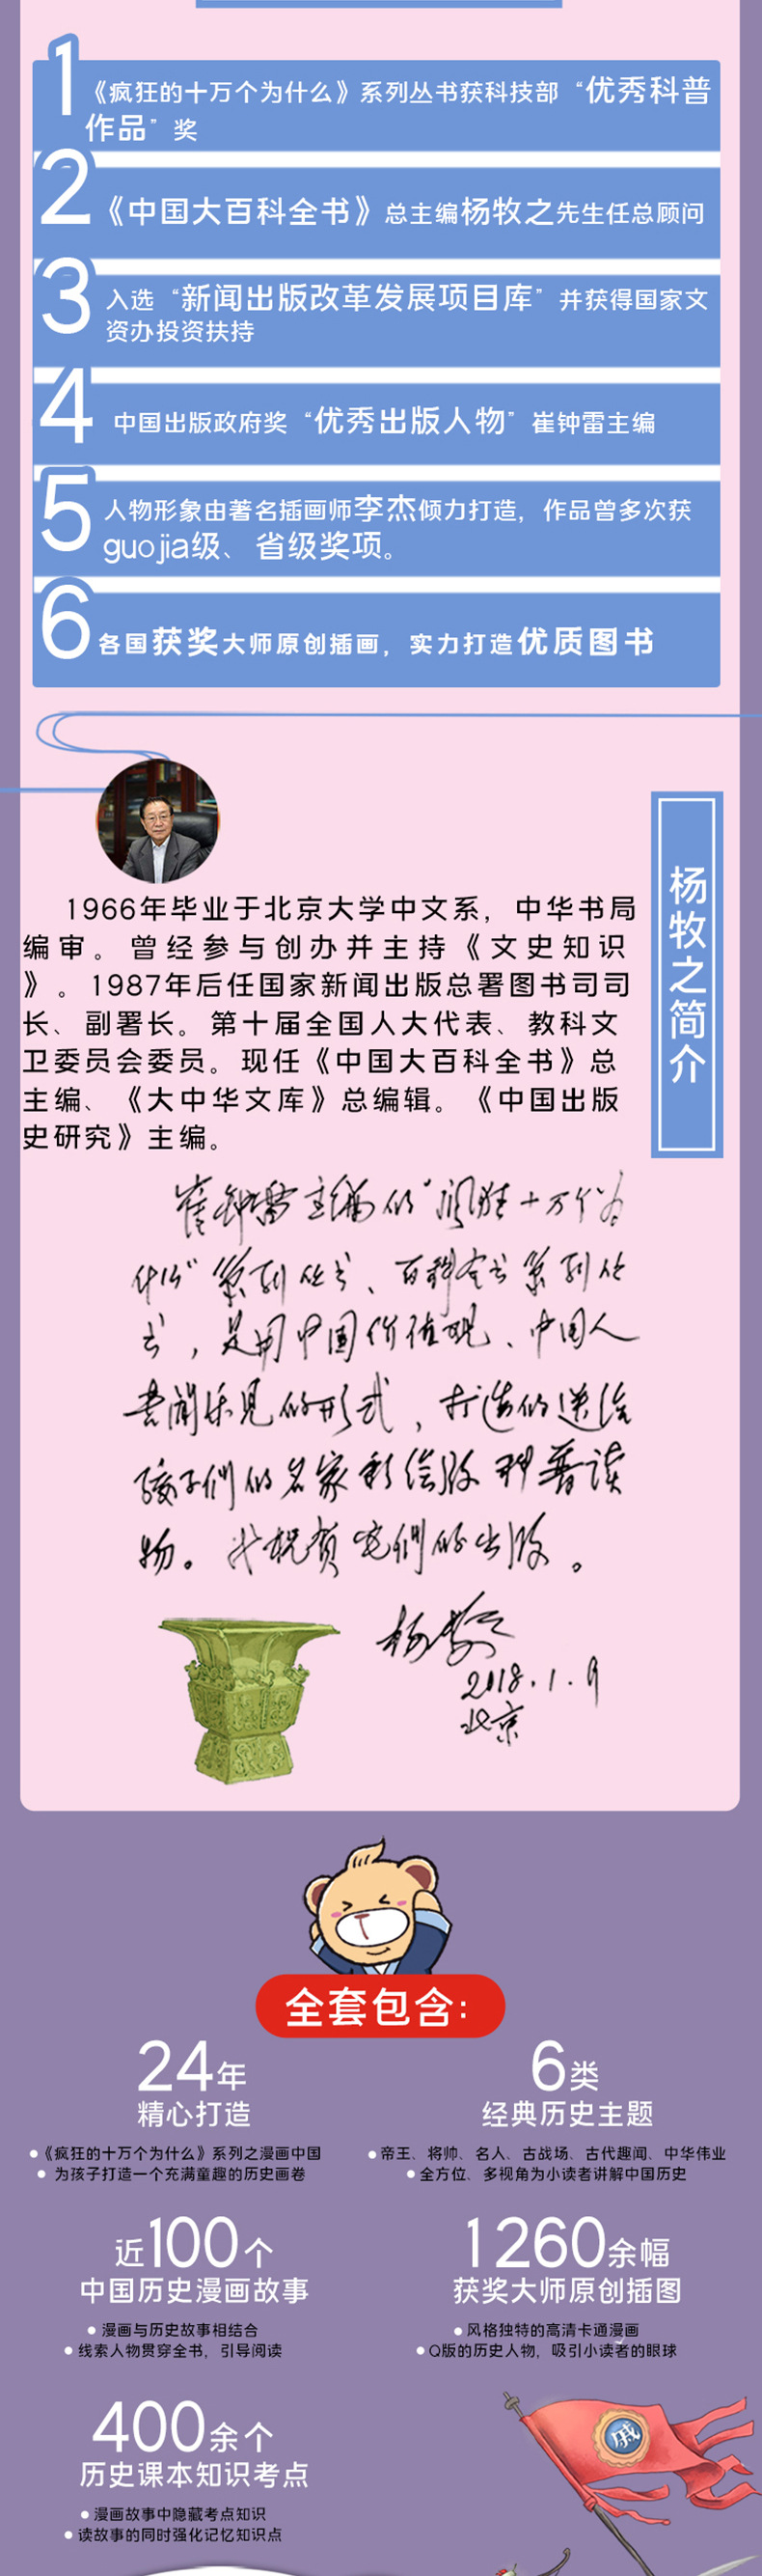 1
《疯狂的十万个为什么》系列丛书获科技部“优秀科普
作品”奖
2
《中国大百科全书》总主编杨牧之先生任总顾问
3
入选“新闻出版改革发展项目库”并获得国家文
资办投资扶持
4
中国出版政府奖“优秀出版人物”崔钟雷主编
5
人物形象由著名插画师李杰倾力打造，作品曾多次获
guojia级、省级奖项。
6
各国获奖大师原创插画，实力打造优质图书
杨牧之简介
1966年毕业于北京大学中文系，中华书局
编审。曾经参与创办并主持《文史知识
》。1987年后任国家新闻出版总署图书司司
长、副署长。第十届全国人大代表、教科文
卫委员会委员。现任《中国大百科全书》总
主编、《大中华文库》总编辑。《中国出版
史研究》主编。
崔钟雷主编的“疯狂十万个为
什么”系列丛书、百科全书系列丛
书，是用中国价值观、中国人
喜闻乐见的形式，打造的送给
孩子们的名家彩绘版科普读
物。我祝贺它们的出版。
杨牧之
2018.1.9
北京
全套包含：
24年
精心打造
●《疯狂的十万个为什么》系列之漫画中国
● 为孩子打造一个充满童趣的历史画卷
6类
经典历史主题
●帝王、将帅、名人、古战场、古代趣闻、中华伟业
●全方位、多视角为小读者讲解中国历史
近100个
中国历史漫画故事
●漫画与历史故事相结合
●线索人物贯穿全书，引导阅读
1260余幅
获奖大师原创插图
●风格独特的高清卡通漫画
●Q版的历史人物，吸引小读者的眼球
400余个
历史课本知识考点
●漫画故事中隐藏考点知识
●读故事的同时强化记忆知识点
戚